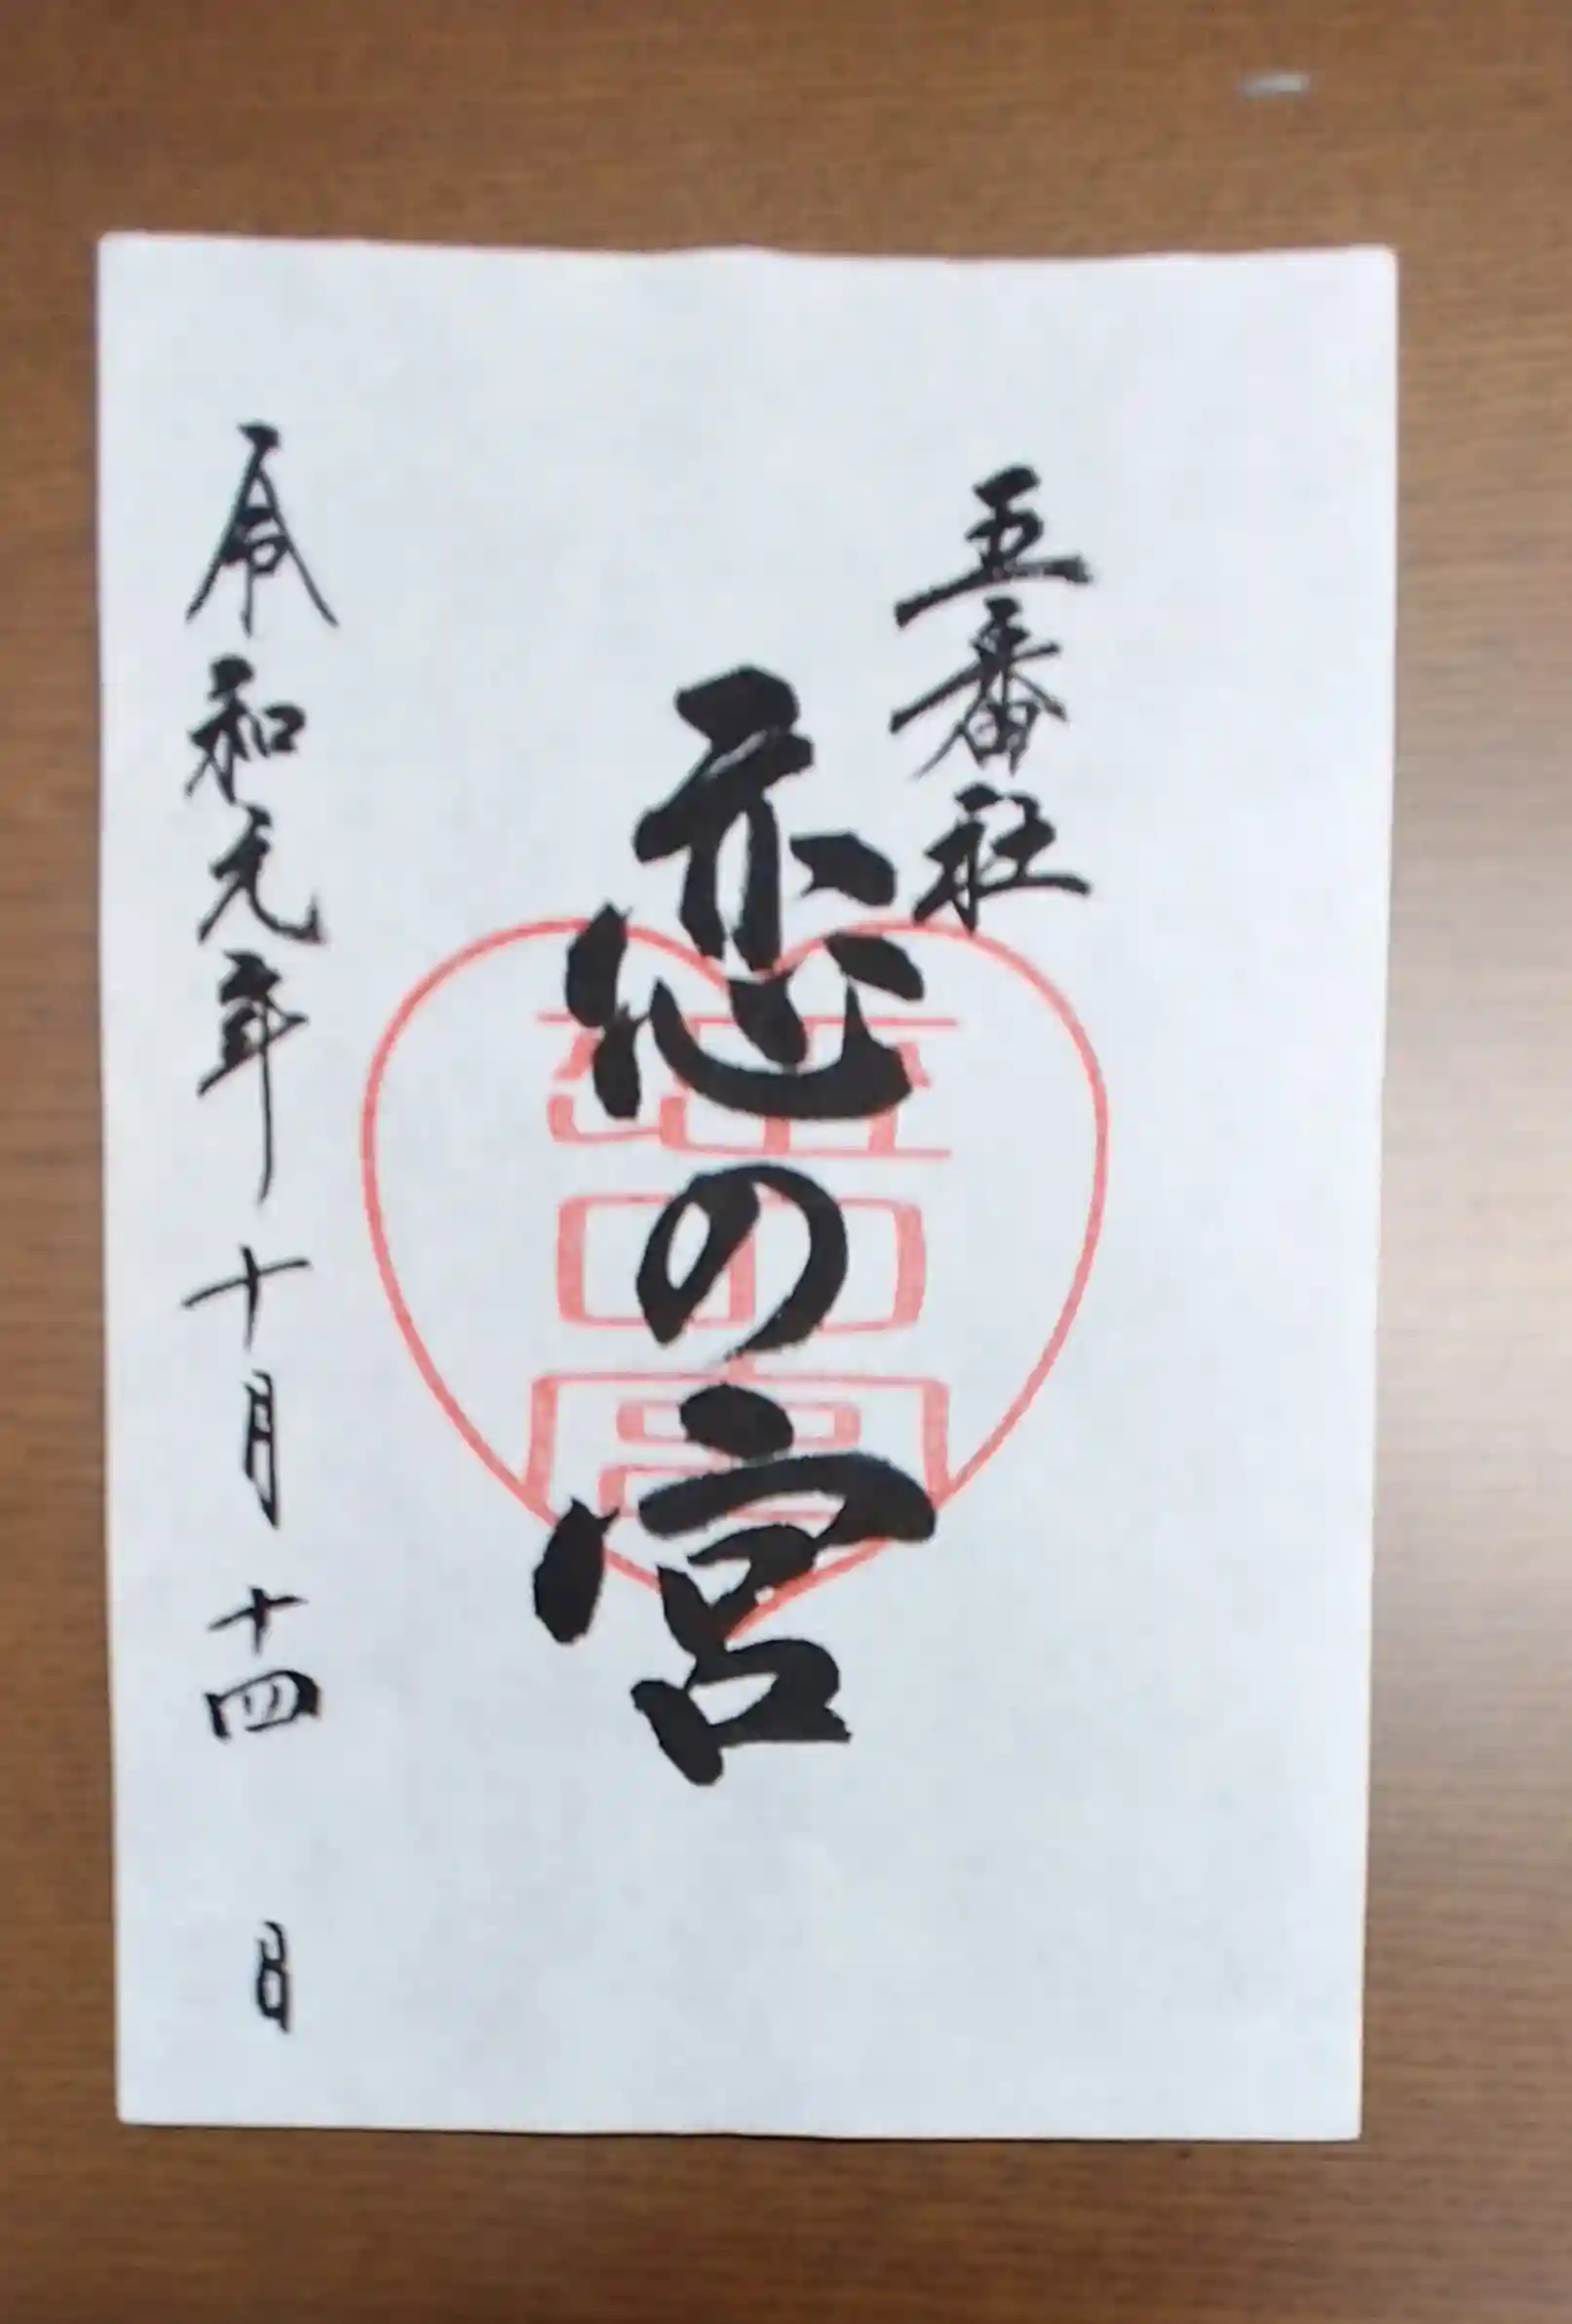 五番社
恋の宮
令和元年十月十四日